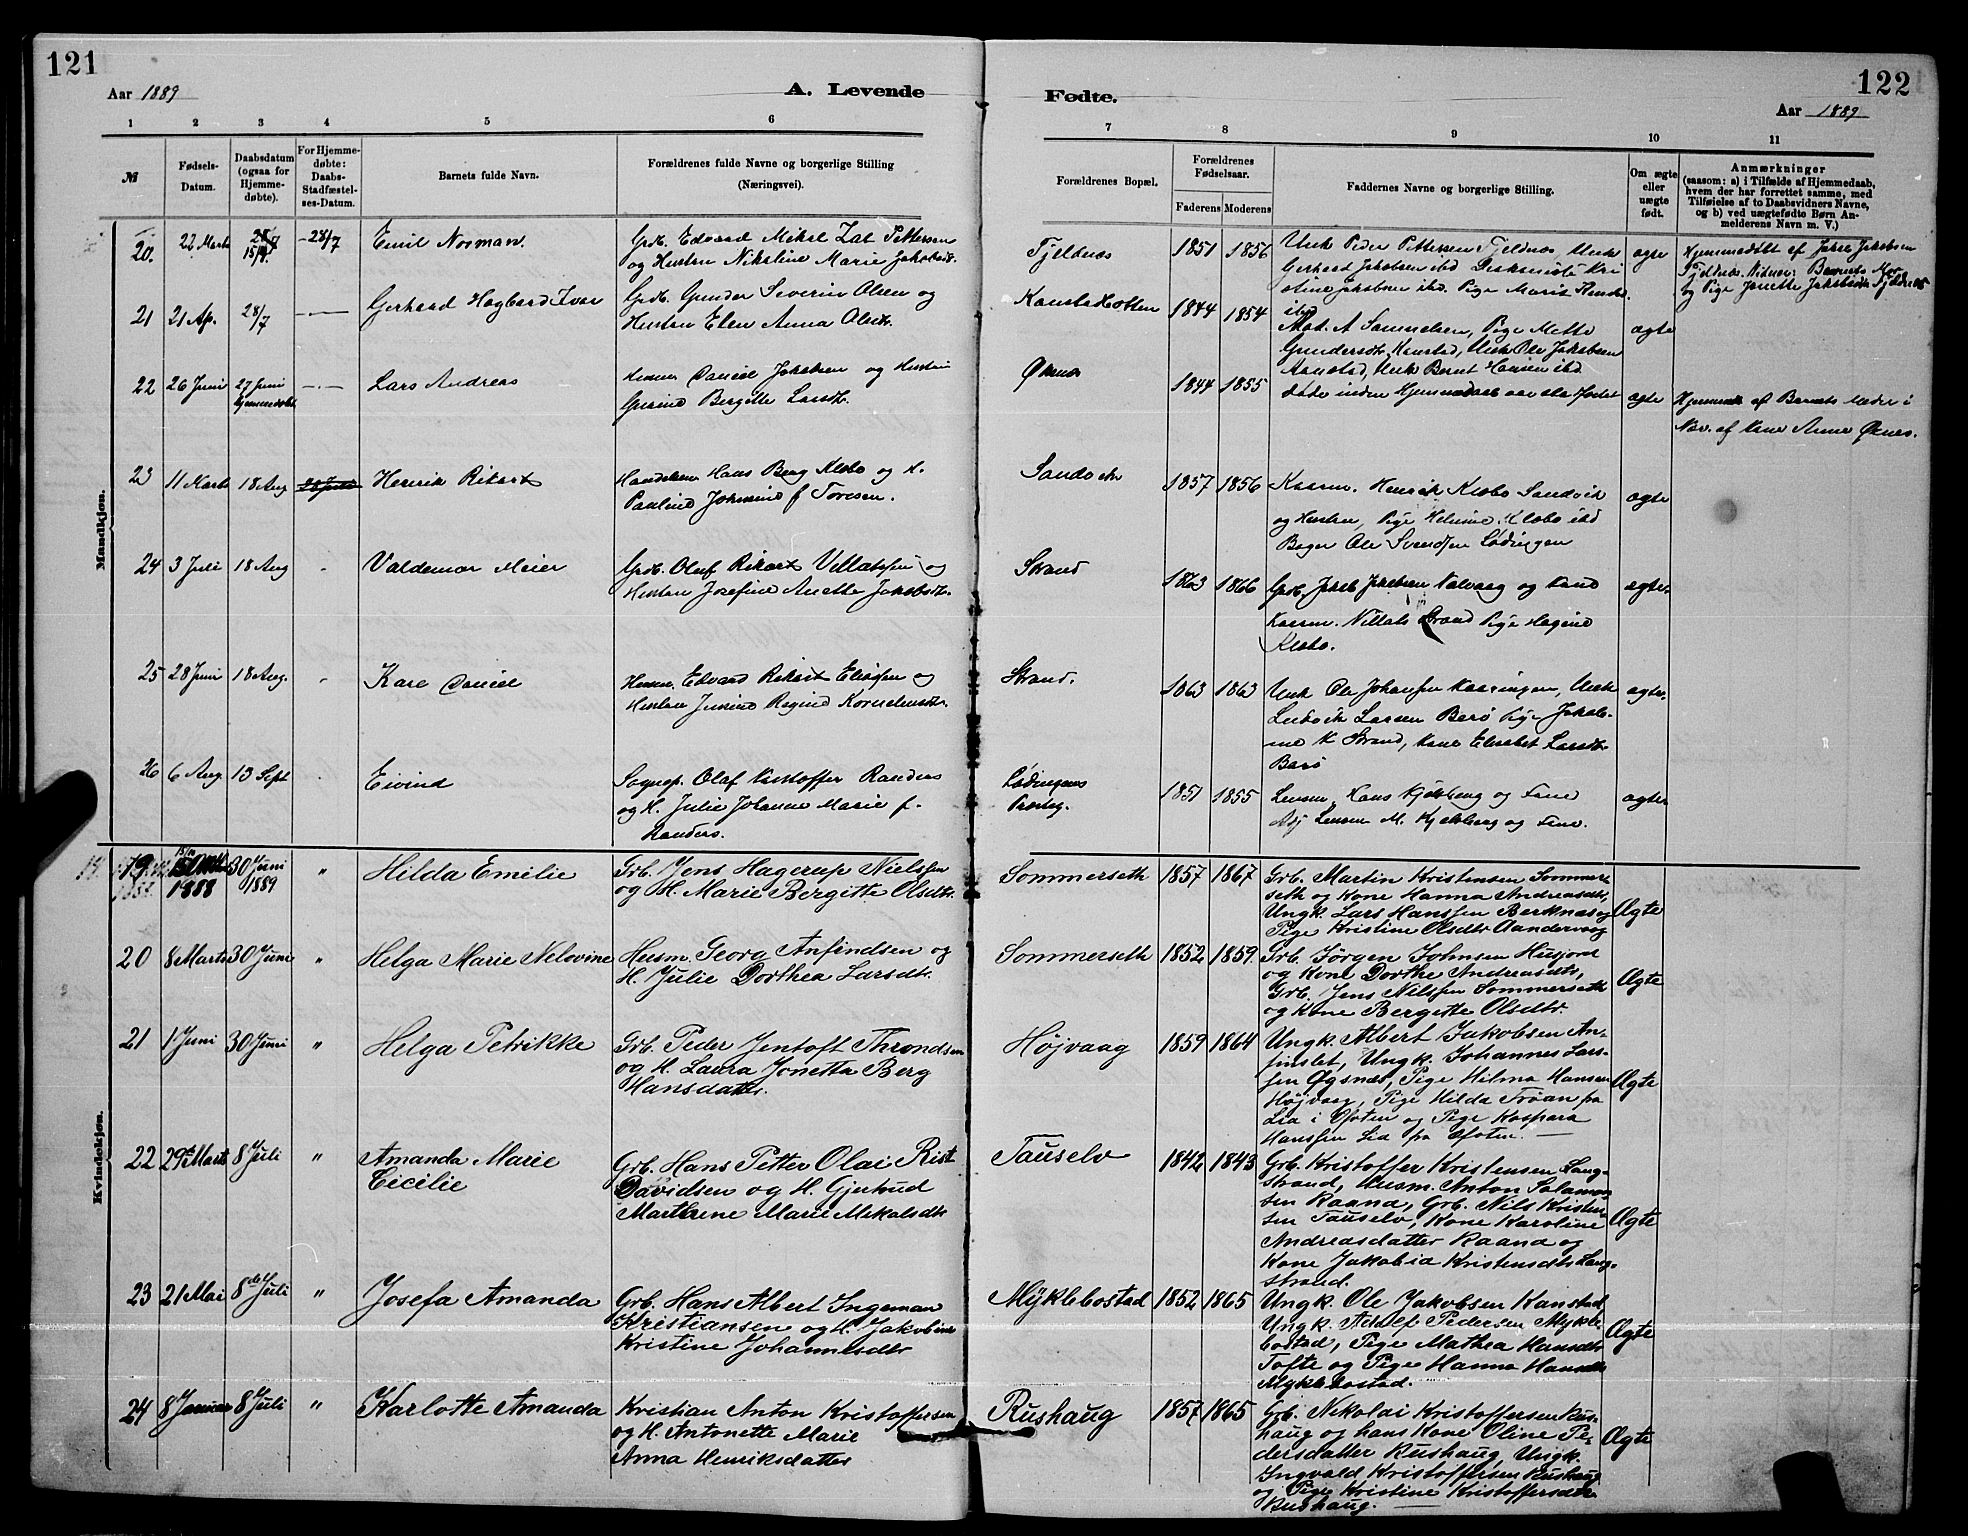 121
Aar 1889
A. Levende
Fødte.
122
Aar 1889
1 2 3 4 5 6 7 8 9 10 11
№
Fødsels-
Datum.
Daabsdatum
(ogsaa for
Hjemme-
døbte).
For Hjemme-
døbte:
Daabs-
Stadfæstel-
ses-Datum.
Barnets fulde Navn.
Forældrenes fulde Navne og borgerlige Stilling
(Næringsvei).
Forældrenes Bopæl.
Forældrenes
Fødselsaar.
Faderens Moderens
Faddernes Navne og borgerlige Stilling.
Om ægte
eller
uægte
født.
Anmærkninger
(saasom: a) i Tilfælde af Hjemmedaab,
hvem der har forrettet samme, med
Tilføielse af to Daabsvidners Navne,
og b) ved uægtefødte Børn An-
melderens Navn m. V.)
Mandkjøn.
20. 22 Marts 28/7 Emil Norman.
og Hustru Nikoline Marie Jakobsdt.
Tjeldnes 1851 1856
Ungk Peder Pettersen Tjeldnes Ungk
Gerhard Jakobsen ibd
stine Jakobsen ibd. Pige Marit
ibd
ægte
Hjemmedøbt af Jakob Jakobsen
Tjeldnes. Vidner: Barnets Mor
og Pige Janette Jakobsdt Tjeldnes
21 21 Ap. 28/7 Gerhard Hagbard Ivar
Grb. Gunder Severin Olsen og
Hustru Elen Anna Olsdt.
Kanstadbotten 1844 1854
Mat. A Samuelsen, Pige Mette
Gundersdt. Kanstad, Ungk Ole Jakobsen
Kanstad, Ungk Bernt Hansen ibd
ægte
22 26 Juni 27 Juni
hjemmedøbt
Lars Andreas
Husm Daniel Jakobsen og Hustru
Bergitte Larsdt.
Øksnes 1844 1855
døde inden
ægte
Hjemmed af Barnets
Nav. af Kone Anne Øksnes.
23 11 Marts 18 Aug Henrik Rikart
Handelsm Hans Berg Klæbo og H.
Pauline Johanne f Toresen.
Sandvik 1857 1856
Kaarm. Henrik Klæbo Sandvik
og Hustru, Pige Helmine Klæbo ibd
Bager Ole Svendsen Lødingen
ægte
24 3 Juli 18 Aug Valdemar Meier
Grb. Oluf Rikart Villatsen og
Hustru Josefine Anette Jakobsdt.
Strand 1863 1866
Grb. Jakob Jakobsen Nalvaag og Kone
Kaarm. Villats Strand Pige Hagine
Klæbo.
ægte.
25 28 Juni 18 Aug. Kare Daniel
Husm. Edvard Rikart Eliasen og
Hustru Jensine Regine Kornelius dt.
Strand. 1863 1863
Ungk Ole Johansen Kaaringen, Ungk
Ludvik Larsen Barø Pige Jakob-
ine K Strand, Kone Elisabet Larsdt.
Barø
ægte.
26 6 Aug. 13 Sept Eivind
Sognep. Olaf Kristoffer Randers
og H. Julie Johanne Marie f.
Randers.
Lødingens
Presteg. 1851 1855
Lensm. Hans Kjelsberg og Frue
Adj Lensm M. Kjelsberg og Frue.
ægte
Kvindekjøn.
19 15/10
1888 30 Juni
1889 " Hilda Emilie
Grb. Jens Hagerup Nielsen
og H. Marie Bergitte Olsdtr.
Sommerseth 1857 1867
Grb. Martin Kristensen Sommer-
seth og Kone Hanna Andreasdtr,
Ungk. Lars Hanssen Berknæs og
Pige Kristine Olsdtr Aandervaag
Ægte
20 8 Marts 30 Juni " Helga Marie Nelovine
Husm. Georg Anfindsen og
H. Julie Dorthea Larsdtr.
Sommerseth 1852 1859.
Grb. Jørgen Johnsen Husjord
og Kone Dorthe Andreasdtr,
Grb. Jens Nilssen Sommerseth
og Kone Bergitte Olsdtr.
Ægte
21 1 Juni 30 Juni " Helga Petrikke
Grb. Peder Jentoft Throndsen
og H. Laura Jonetta Berg
Hansdatter.
Højvaag 1859 1864
Ungk. Albert Jakobsen An-
finslet, Ungk. Johannes Lars-
sen Øgsnes, Pige Hilma Hansen
Højvaag, Pige Hilda Trøan fra
Lia i Ofoten og Pige Kaspara
Hanssen Lia fra Ofoten. —
Ægte
22 29de Marts 8 Juli " Amanda Marie
Cecilie
Grb. Hans Petter Olai Rist
Davidsen og H. Gjertrud
Marthene Marie Mekalsdtr
Tauselv 1842 1843
Grb. Kristoffer Kristensen Lang-
strand, Husm. Anton Salamon-
sen Raand, Grb. Nils Kristen-
sen Tauselv, Kone Karoline
Andreasdatter Raand og
Kone Jakobia Kristensdtr Lang-
strand.
Ægte
23 21 Mai 8de Juli " Josefa Amanda
Grb. Hans Albert Ingeman
Kristiansen og H. Jakobine
Kristine Johannesdtr
Myklebostad 1852 1865
Ungk. Ole Jakobsen Kanstad
Ungk. Adolf Pedersen Mykle-
bostad, Pige Mathea Hansdtr
Tofte og Pige Hanna Hansdtr
Myklebostad.
Ægte
24 8 Januar 8 Juli " Karlotte Amanda
Kristian Anton Kristoffersen
og H. Antonette Marie
Anna Henriksdatter
Rushaug 1857 1865
Grb. Nikolai Kristoffersen Rus-
haug og hans Kone Oline Pe-
dersdatter Rushaug, Ungk.
Ingvald Kristoffersen Rushaug
og Pige Kristine Kristoffersdtr
Rushaug. —
Ægte